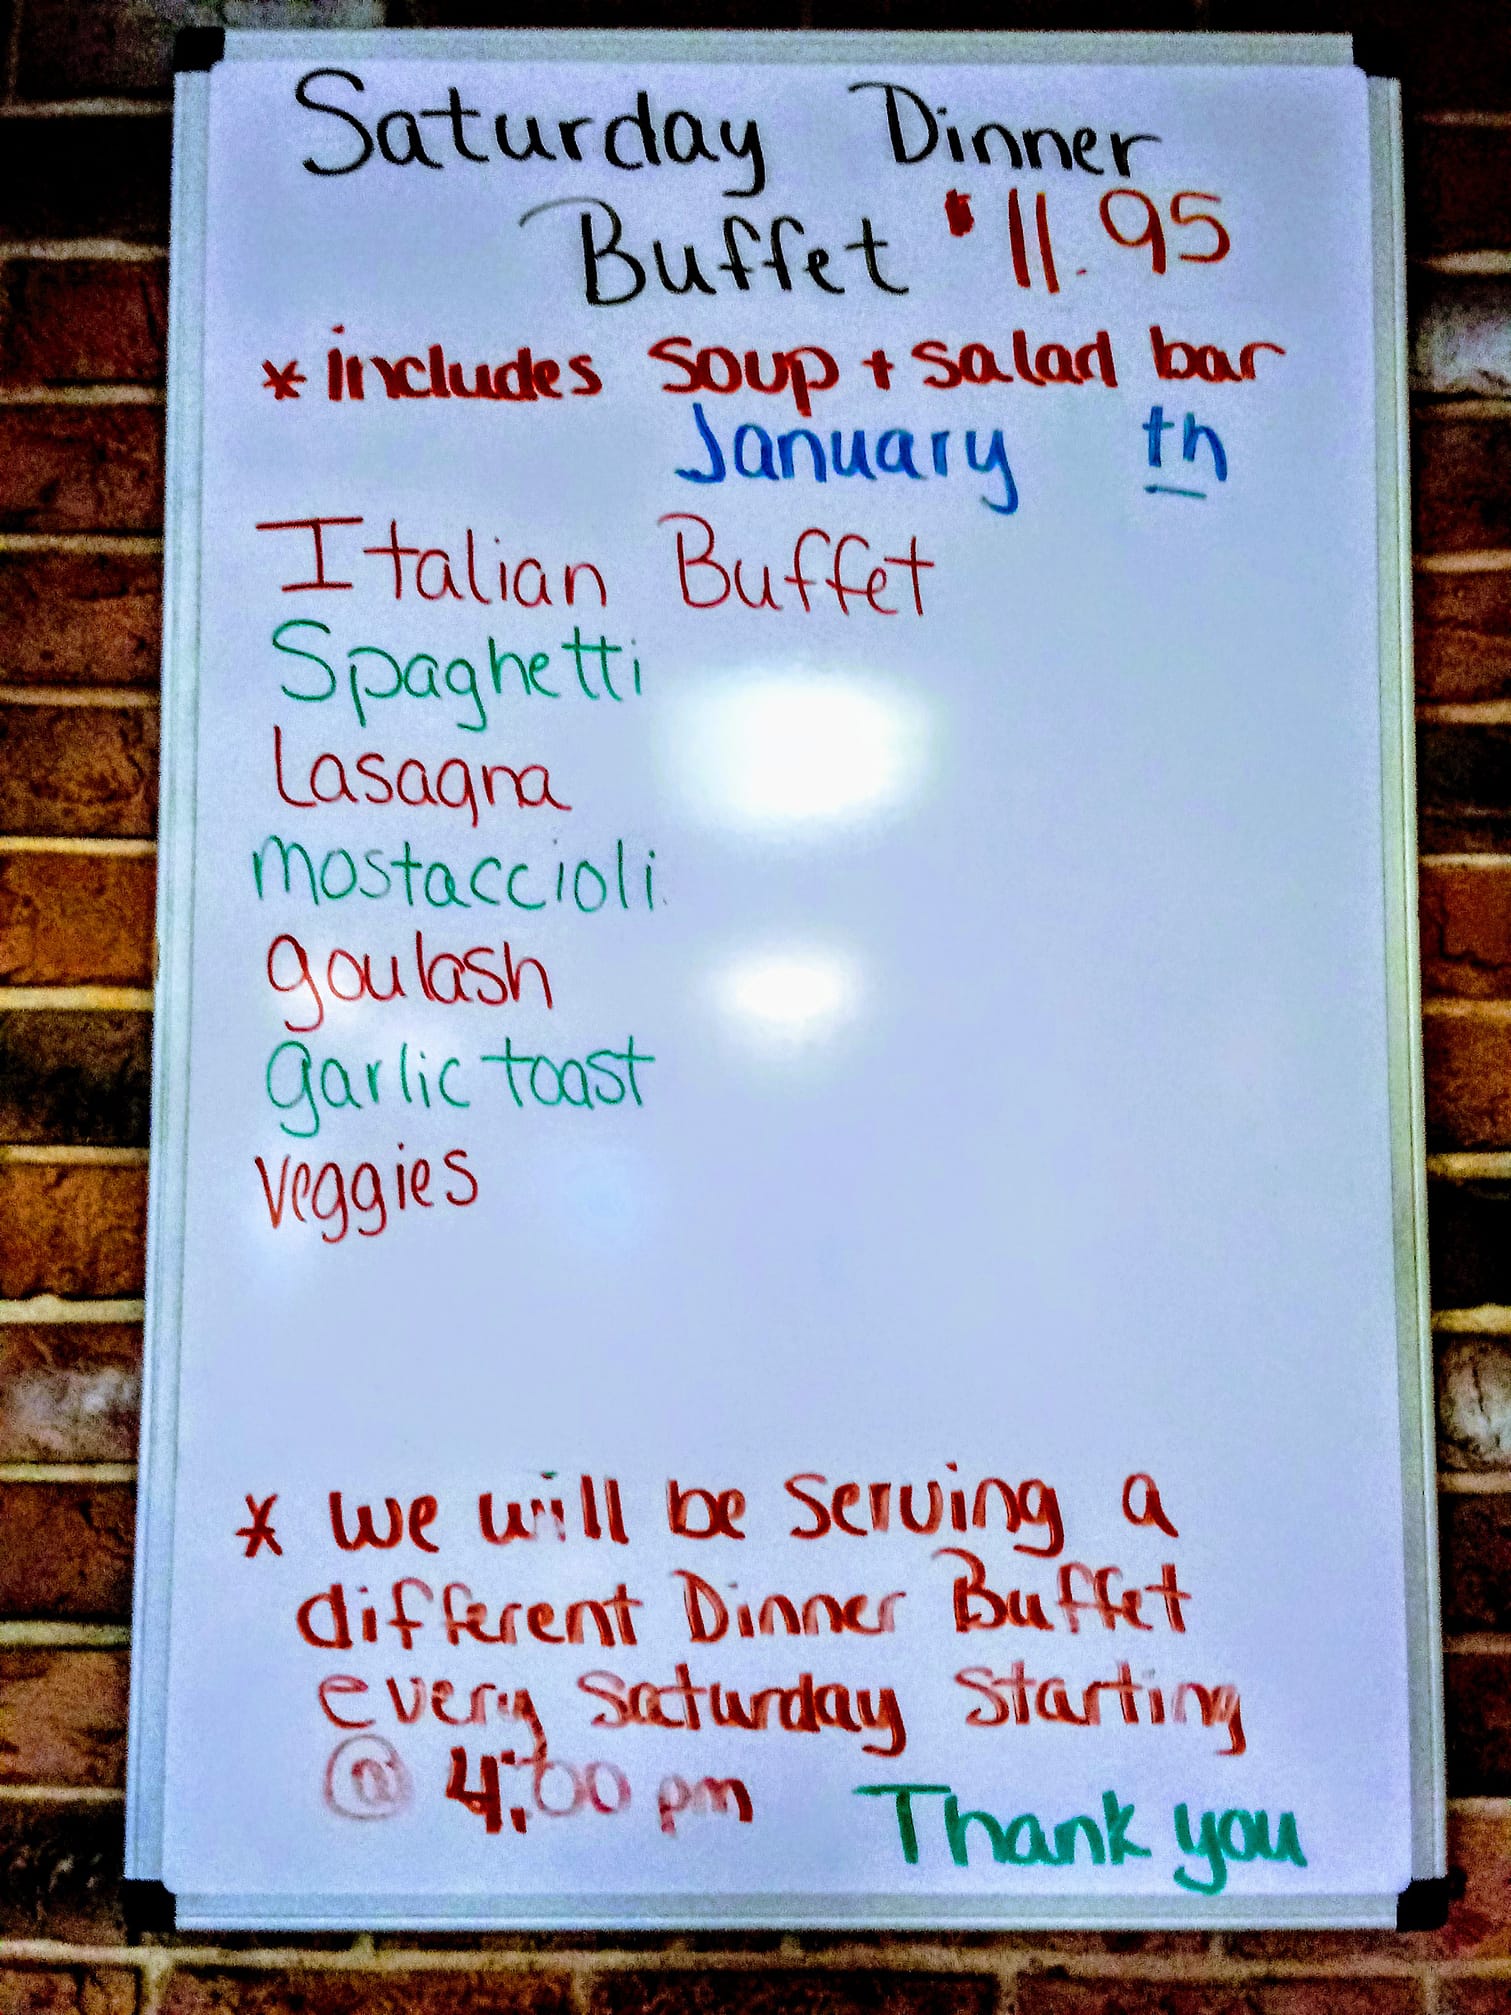 Saturday Dinner
Buffet $11.95
* includes Soup + Salad bar
January th
Italian Buffet
Spaghetti
Lasagna
mostaccioli
goulash
garlic toast
veggies
* we will be serving a
different Dinner Buffet
every Saturday Starting
@ 4:00 pm Thank you